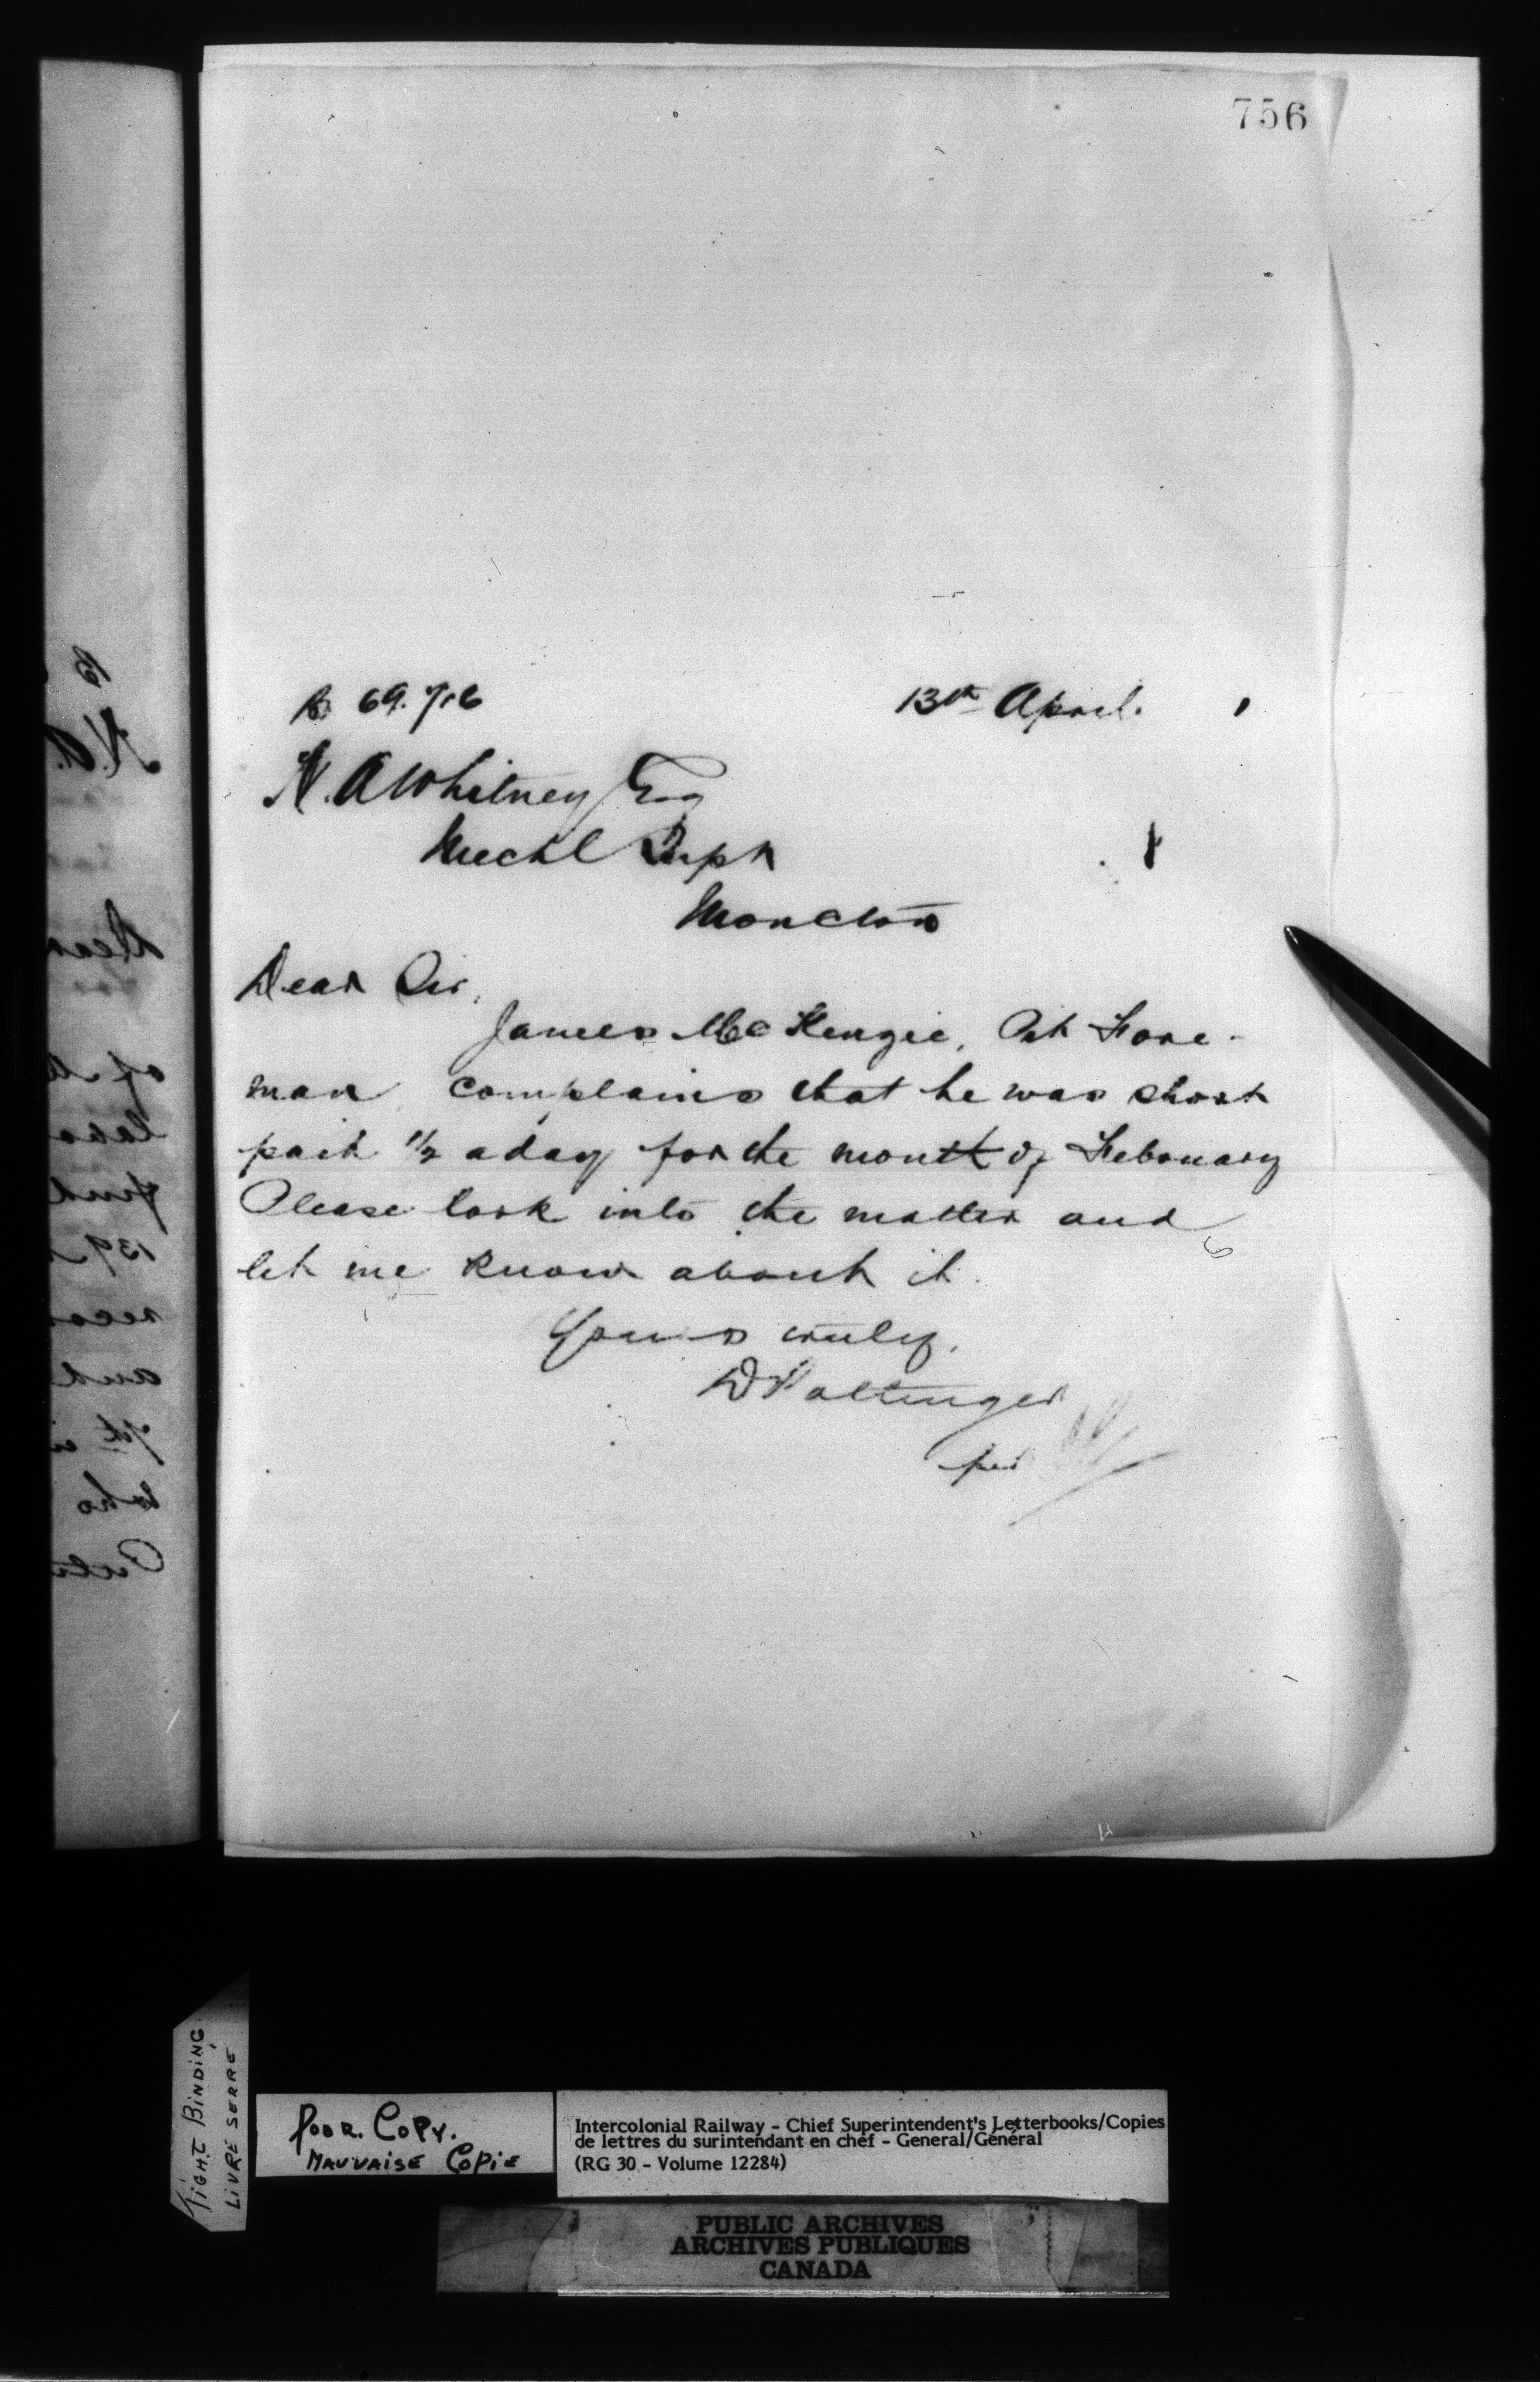 756
B 69.716
13th April.
N. A Whitney Esq
Mechl Supt
Moncton
Dear Sir,
James McKenzie, Pit Fore-
man complains that he was short
paid 1/2 a day for the month of February
Please look into the matter and
let me know about it.
Yours truly,
D Pottinger
per
TIGHT BINDING
LIVRE SERRE
POOR. COPY.
MAUVAISE COPIE
Intercolonial Railway - Chief Superintendent's Letterbooks/Copies
de lettres du surintendant en chef - General/Général
(RG 30 - Volume 12284)
PUBLIC ARCHIVES
ARCHIVES PUBLIQUES
CANADA